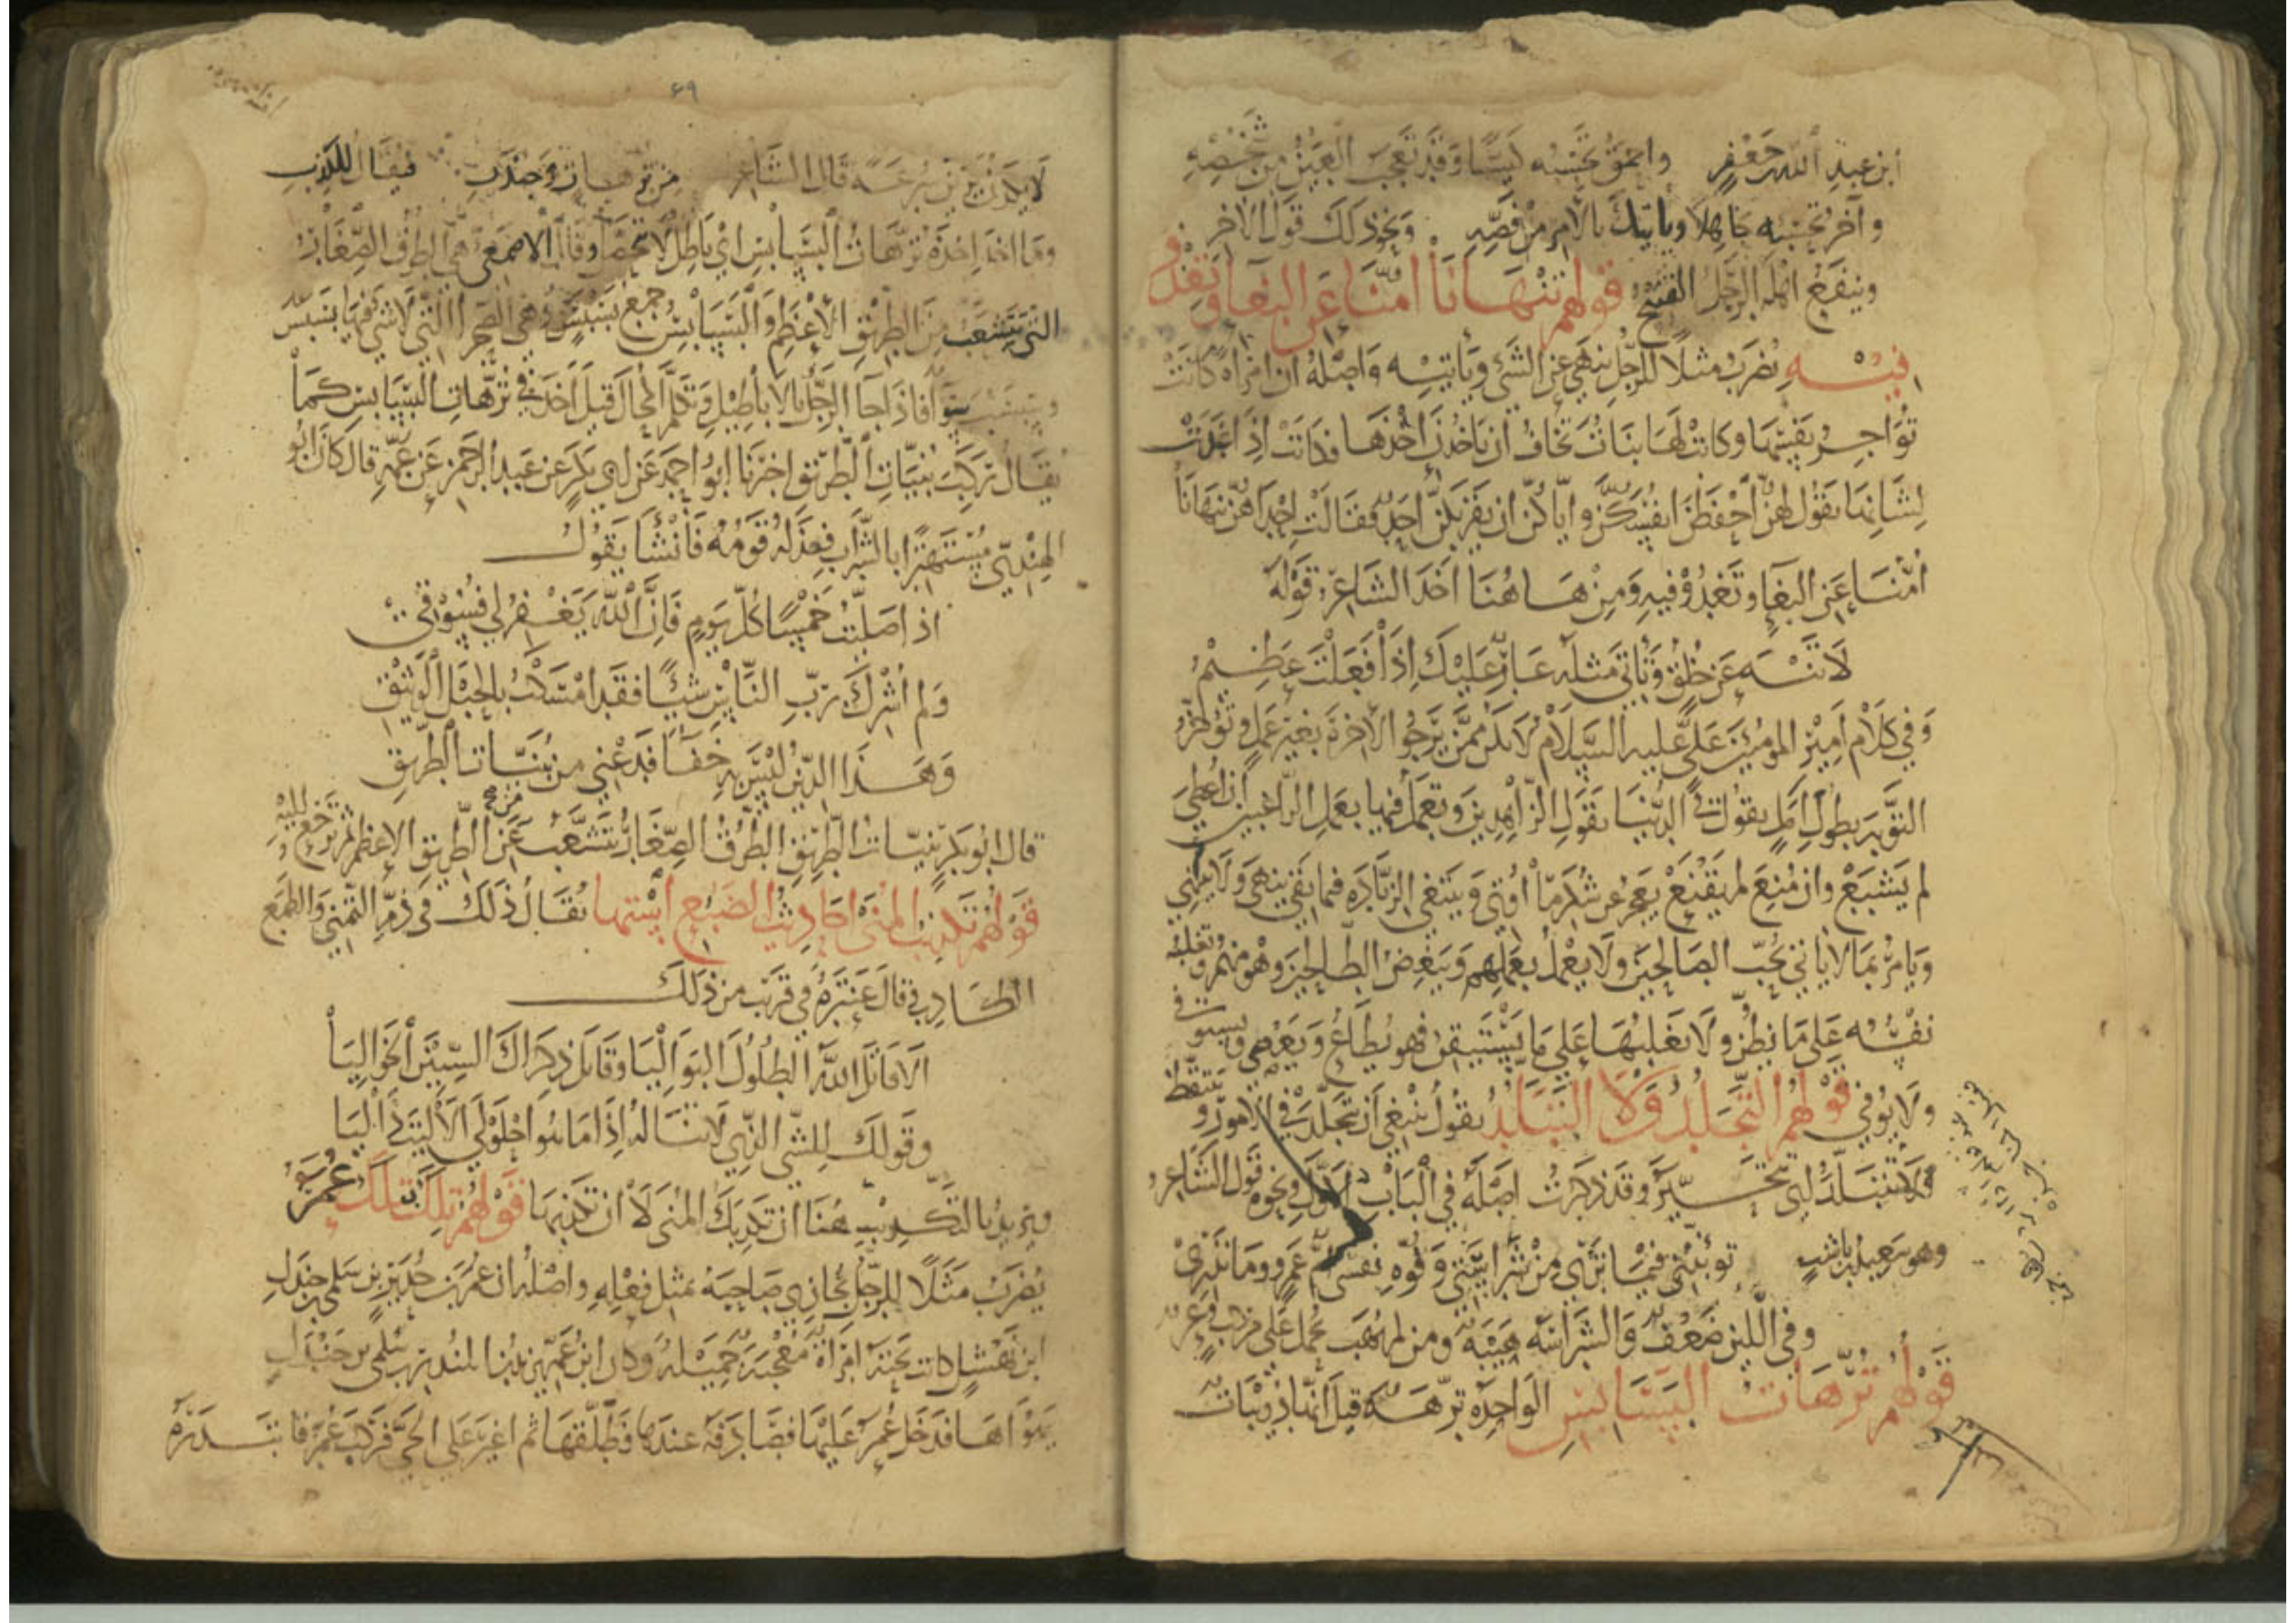 ابن عبد الله جعفر واحمق تحسبه كيّسا وقد تعجب العين من شخصه
وآخر تحسبه جاهلا وياتيك بالامر من فصّه ونحو ذلك قول الآخر
وينفع اهله الرجل القبيح قولهم تنهانا امّنا عن البغا وتغدو
فيه يضرب مثلا للرجل ينهي عن الشي وياتيه واصله ان امراة كانت
تواجر نفسها وكانت لها بنات تخاف ان ياخذن اخذها فكانت اذا غدت
لشانها تقول لهن احفظن انفسكن واياكن ان يقربكن احد فقالت احداهن تنهانا
امّنا عن البغا وتغدو فيه ومن هاهنا اخذ الشاعر قوله
لا تنه عن خلق وتاتي مثله عار عليك اذا فعلت عظيم
وفي كلام امير المومنين علي عليه السلام لا تكن ممن يرجو الآخرة بغير عمل وتوخر
التوبة بطول امل يقول في الدنيا بقول الزاهدين ويعمل فيها بعمل الراغبين ان اعطي
لم يشبع وان منع لم يقنع يعجز عن شكر ما اوتي ويبتغي الزيادة فيما بقي ينهي ولا ينتهي
ويامر بما لا ياتي يحب الصالحين ولا يعمل بعملهم ويبغض الطالحين وهو منهم وتغلبه
نفسه على ما يظن ولا يغلبها على ما يستيقن فهو يطاع ويعصي ويستوفي
ولا يوفي قولهم التجلد ولا التبلد يقول ينبغي ان تتجلد في الامور وتتيقظ
ولا تتبلد اي تتحير وقد ذكرت اصله في الباب الاول ونحوه قول الشاعر
وهو سعيد بن ناشب توبّنني فيما تري من شراستي وقوة نفسي ام عمرو وما تدري
وفي اللين ضعف والشراسة هيبة ومن لم يهب يحمل على مركب وعر
قولهم ترّهات البسابس الواحدة ترّهة قيل انها دويبات
٦٩
قال الشاعر فيقال للكذب
وما اخذ اخذه ترّهات البسابس اي باطل لا تحصل وقال الاصمعي هي الطرق الصغار
التي تتشعب من الطريق الاعظم والبسابس جمع بسبس وهي الصحرا التي لا شي فيها بسبس
وسبسب سوا فاذا جا الرجل بالاباطيل وتكلم بالمحال قيل اخذ في ترّهات البسابس كما
يقال ركبت بنيّات الطريق اخبرنا ابو احمد عن ابي بكر عن عبد الرحمن عن عمه قال كان ابو
الهندي مستهترا بالشراب فعذله قومه فانشا يقول
اذا صليت خمسا كل يوم فان الله يغفر لي فسوقي
ولم اشرك برب الناس شيا فقد امسكت بالحبل الوثيق
وهذا الدين ليس به خفا فدعني من بنيّات الطريق
قال ابو بكر بنيّات الطريق الطرق الصغار تتشعب عن الطريق الاعظم ثم ترجع اليه
قولهم تكذيب المنى احاديث الضبع استها يقال ذلك في ذم التمني والطمع
الكاذب قال عنترة في قريب من ذلك
الا قاتل الله الطلول البواليا وقاتل ذكراك السنين الخواليا
وقولك للشي الذي لا تناله اذا ما هو احلولى الا ليت ذا ليا
ويريد بالتكذيب هنا ان تكذبك المنى لا ان تكذبها قولهم تلك بتلك عمرو
يضرب مثلا للرجل يجازي صاحبه بمثل فعله واصله ان عمرو بن حدير بن سلمى بن جندل
ابن نهشل كانت تحته امراة معجبة جميلة وكان ابن عمه يزيد بن المنذر بن سلمى بن جندل
يهواها فدخل عمرو عليها فصادفه عندها فطلقها ثم اغير على الحي فركب عمرو فابتدره